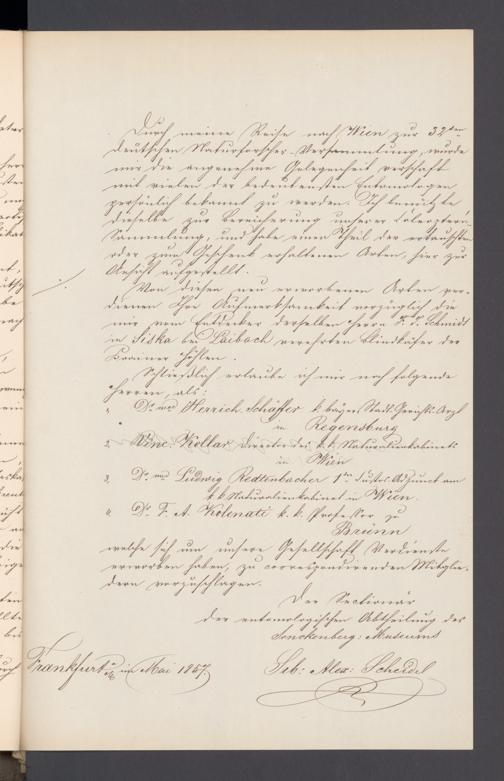 Durch meine Reise nach Wien zur 32ten
deutschen Naturforscher-Versammlung, wurde
mir die angenehme Gelegenheit verschafft
mit vielen der bedeutensten Entomologen
persönlich bekannt zu werden. Ich benutzte
dieselbe zur Bereicherung unserer Coleoptern
Sammlung, und habe einen Theil der ertauschten
oder zum Geschenk erhaltenen Arten, hier zur
Ansicht aufgestellt.
Von diesen neu erworbenen Arten ver-
dienen Ihre Aufmerksamkeit vorzüglich die
mir vom Entdecker derselben Herrn F. J. Schmidt
in Siska bei Laibach verehrten Blindkäfer der
Krainer Höhlen.
Schließlich erlaube ich mir noch folgende
Herren, als:
" Dr. med Herrich Schäffer k. bayer. Stadt. Gerichts-Arzt
in Regensburg
2, Vinc: Kollar Director des k. k. Naturalienkabinets
in Wien
3, Dr. med Ludwig Redtenbacher 1ter Custos Adjunct am
k. k. Naturalienkabinet in Wien.
4 Dr. F. A. Kolenati k. k. Professor zu
Brünn
welche sich um unsere Gesellschaft Verdienste
erworben haben, zu correspondirenden Mitglie-
dern vorzuschlagen.
Der Sectionär
der entomologischen Abtheilung des
Senckenberg: Museums
Frankfurt a/M im Mai 1857.
Seb: Alex: Scheidel